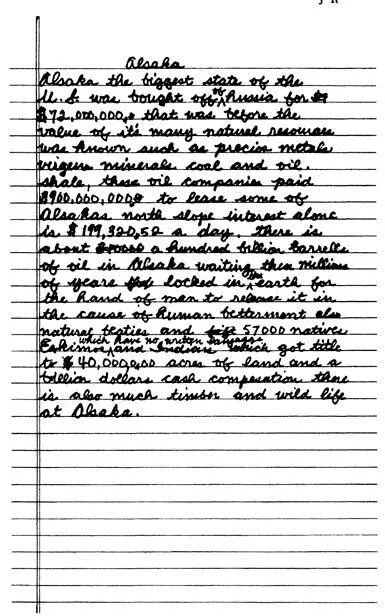 Alsaka
Alsaka the biggest state of the
U.S. was bought off of Russia for
$72,000,000,0 that was before the
value of it's many natural resourses
was known such as precios metals
virgen minerals coal and oil
shale, these oil companies paid
$900,000,000 to lease some of
Alsakas north slope interest alone
is $199,320,52 a day. there is
about a hundred billion barrells
of oil in Alsaka waiting thru millions
of years locked in the earth for
the hand of man to release it in
the cause of human betterment also
natural besties and 57000 natives
Eskimos which have no written language and Indians which got title
to $40,000,00 acres of land and a
billion dollars cash compesation there
is also much timber and wild life
at Alsaka.